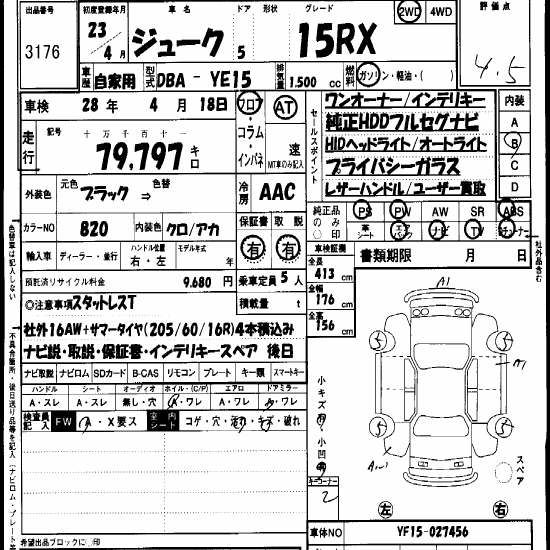 出品番号 3176
初度登録年月 23年 4月
車名 ジューク
ドア 5
形状
グレード 15RX
2WD 4WD
評価点 4.5
車歴 自家用
型式 DBA - YE15
排気量 1.500 cc
燃料 ガソリン・軽油・( )
車検 28年 4月 18日
フロア・コラム・インパネ
AT
速
MT車のみ記入
走行 記号 十万千百十一
79,797 キロ
セールスポイント
ワンオーナー/インテリキー
純正HDDフルセグナビ
HIDヘッドライト/オートライト
プライバシーガラス
レザーハンドル/ユーザー買取
内装
A
B
C
D
外装色 元色 ブラック ⇒ 色替
冷房 AAC
カラーNO 820 内装色 クロ/アカ
保証書 有
取説 有
純正品のみ〇印 PS PW AW SR ABS
革シート エアバック ナビ TV
輸入車 ディーラー・並行
ハンドル位置 右・左
モデル年式 年
車検証欄
書類期限 月 日
預託済リサイクル料金 9.680 円
乗車定員 5 人
全長 413 cm
全幅 176 cm
全高 156 cm
◎注意事項 スタットレスT
積載量 t
社外16AW+サマータイヤ(205/60/16R)4本積込み
ナビ説・取説・保証書・インテリキースペア 後日
ナビ取説 ナビロム SDカード B-CAS リモコン プレート キー類 スマートキー
ハンドル シート オーディオ ホイル・(C/P) エアロ ドアミラー
A・スレ A・スレ 無し・穴 A・ワレ A・ワレ A・ワレ
検査員記入 FW A・X要ス 室内シート コゲ・穴・汚れ・キズ・破れ
小キズ 小凹
キーコーナー
2
A1
5
5
A1
5
5
スペア
左
右
色替車は記入しない
社外品含む
希望出品ブロックに〇印
車体NO YF15-027456